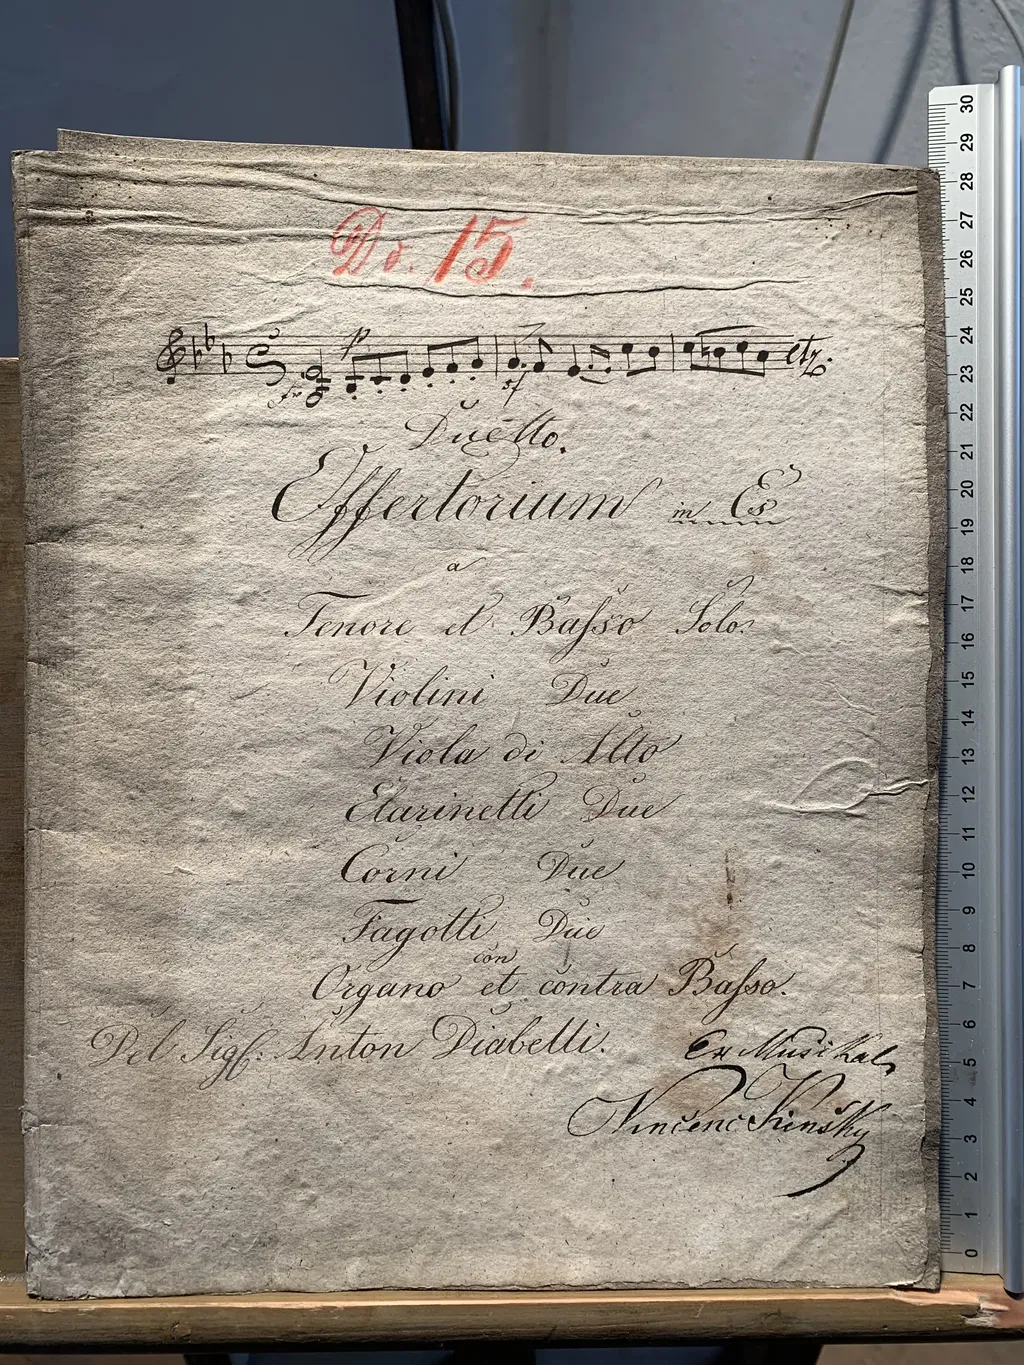 No. 15.
p
etz.
sf
Duetto.
Offertorium in Es
a
Tenore et Basso Solo.
Violini Due
Viola di Alto
Clarinetti Due
Corni Due
Fagotti Due
con
Organo et contra Basso.
Del Sig: Anton Diabelli.
Ex Musikal
Vincenc Kinsky
30
29
28
27
26
25
24
23
22
21
20
19
18
17
16
15
14
13
12
11
10
9
8
7
6
5
4
3
2
1
0